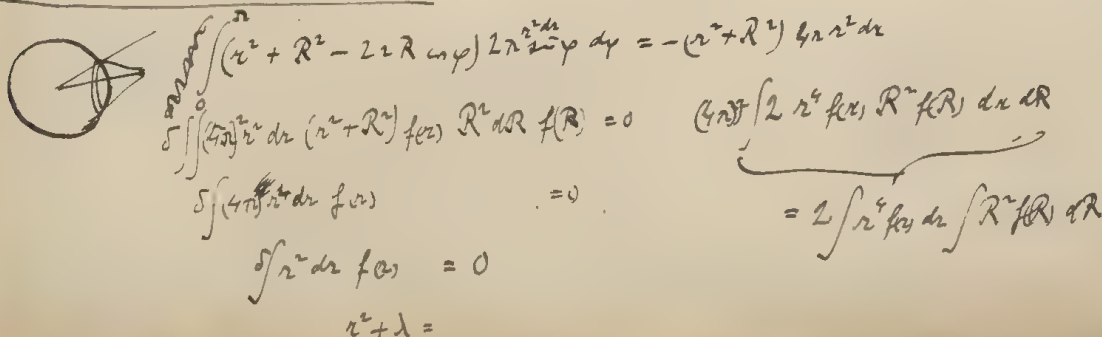 ∫₀^π (r² + R² − 2rR cos φ) 2π r² dr sin φ dφ = −(r² + R²) 4π r² dr
δ∫∫(4π)² r² dr (r² + R²) f(r) R² dR f(R) = 0 (4π)² ∫ 2 r⁴ f(r) R² f(R) dr dR
δ∫(4π) r⁴ dr f(r) = 0 = 2∫ r⁴ f(r) dr ∫ R² f(R) dR
δ∫ r² dr f(r) = 0
r² + λ =